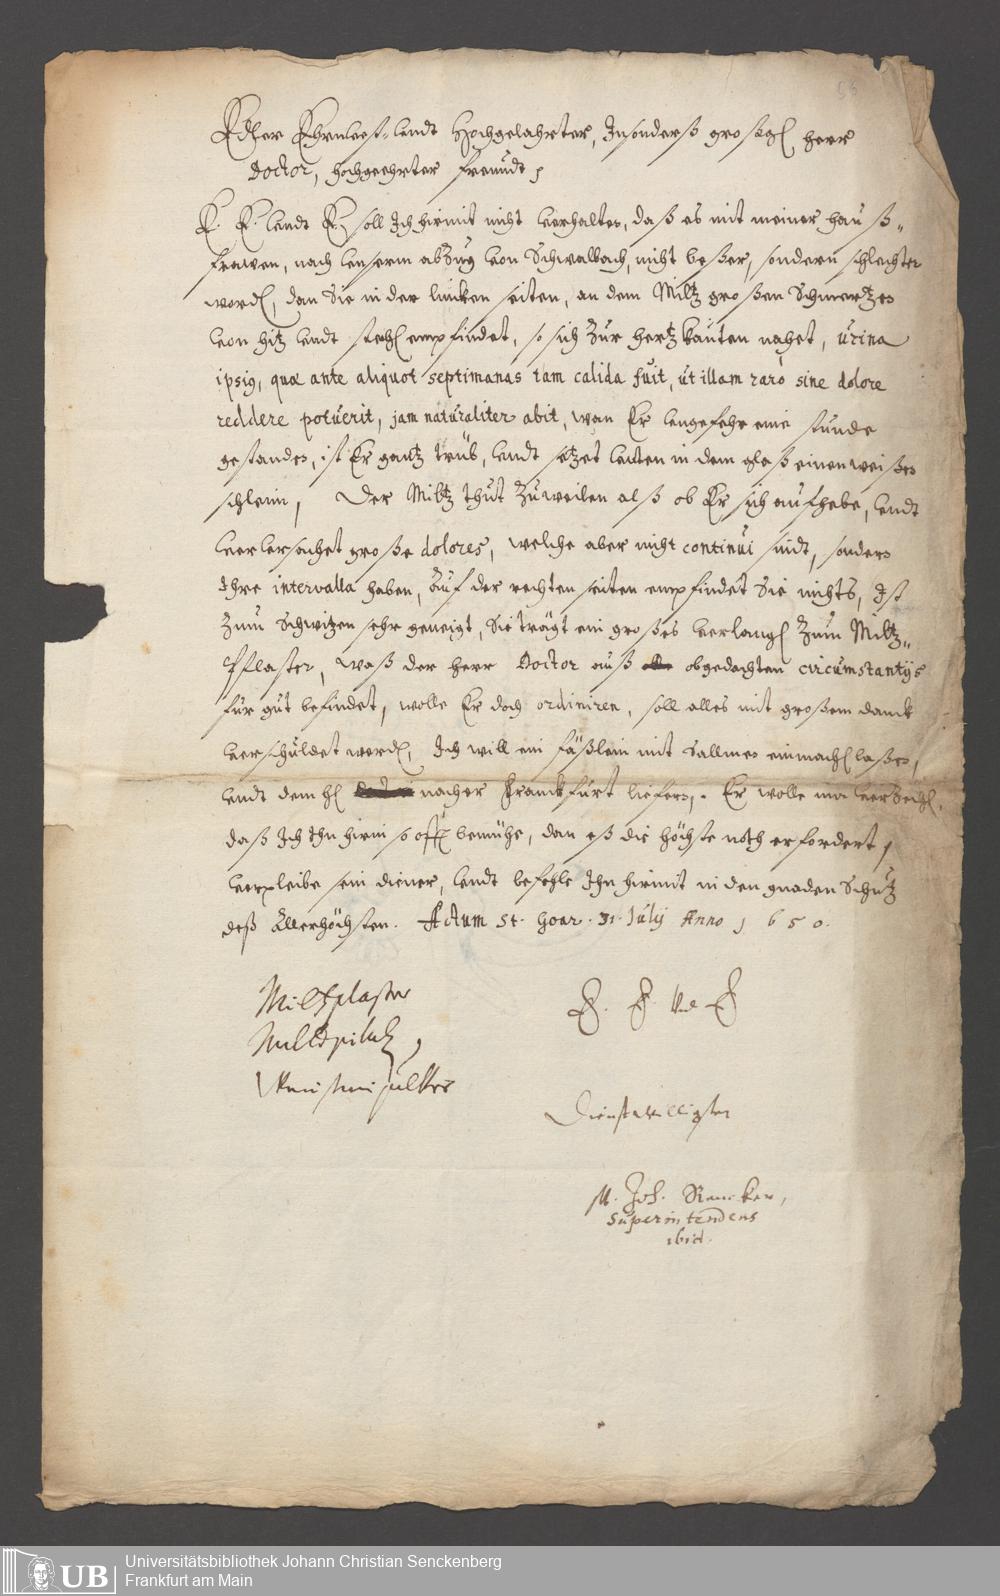 58
Edler Ehrnvest vndt Hochgelahrter, Insonderß großg. herr
Doctor, hochgeehrter freundt,
E. E. vndt E. soll Ich hirmit nicht verhalten, daß es mit meiner hauß„
frawen, nach vnserm abzug von Schwalbach, nicht beßer, sondern schlechter
word, dan Sie in der lincken seiten, an dem Miltz großen Schmertzen
von hitz vndt stech empfindet, so sich zur hertzkauten nahet, urina
ipsius, quae ante aliquot septimanas tam calida fuit, ut illam raro sine dolore
reddere potuerit, jam naturaliter abit, wan Er vngefehr eine stunde
gestanden, ist Er gantz trüb, vndt setzet vnten in dem glaß einen weißen
schleim, Der Miltz thut zuweilen alß ob Er sich aufhebe, vndt
verursachet große dolores, welche aber nicht continui sindt, sondern
Ihre intervalla haben, Auf der rechten seiten empfindet Sie nichts, Ist
zum Schwitzen sehr geneigt, Sie trägt ein großes verlang zum Miltz„
Pflaster, Waß der herr Doctor auß obgedachten circumstantijs
für gut befindet, wolle Er doch ordiniren, soll alles mit großem danck
verschuldet werd, Ich will ein fäßlein mit Sallmen einmach laßen,
vndt dem h nacher Franckfurt liefern, Er wolle mir verzeih,
daß Ich Ihn hirin so offt bemühe, dan eß die höchste noth erfordert,
verpleibe sein diener, vndt befehle Ihn hirmit in den gnaden Schutz
deß Allerhöchsten. Actum St. Goar. 31. July Anno 1650.
Miltzplaster
E. E. vnd E
Dienstwilligster
M. Joh. Reucker,
Superintendens
ibid.
UB
Universitätsbibliothek Johann Christian Senckenberg
Frankfurt am Main